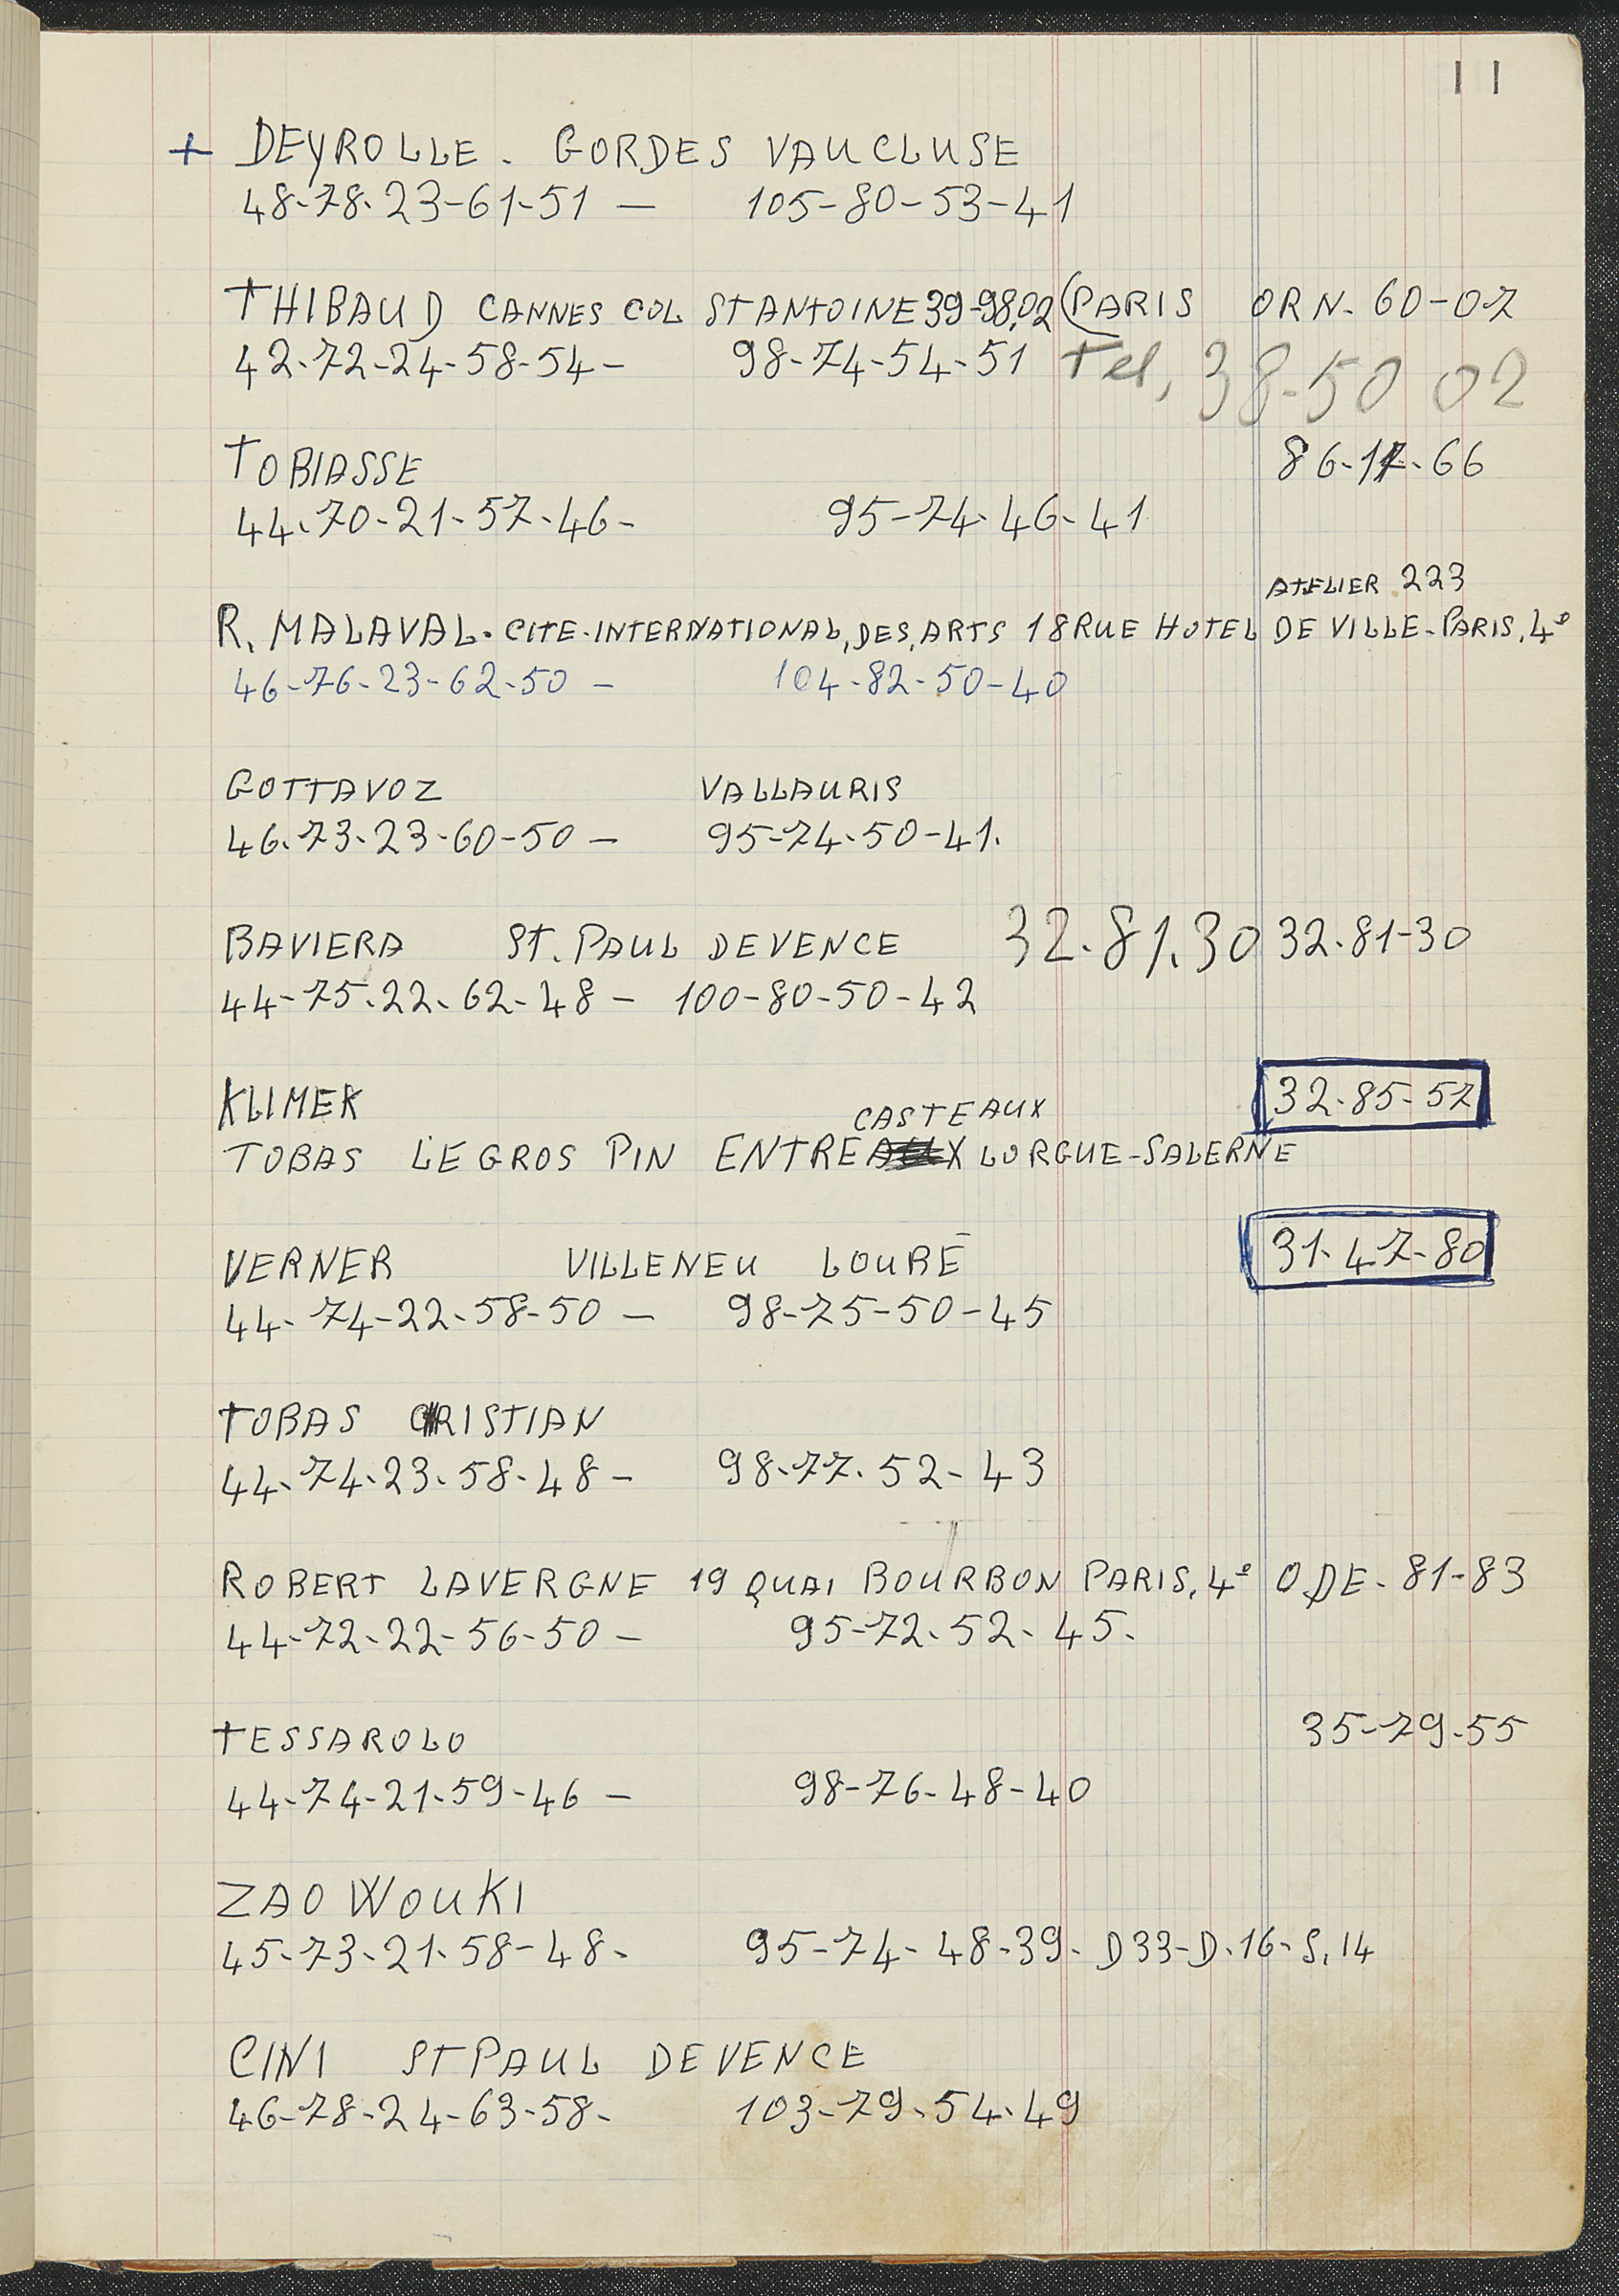 11
+ DEYROLLE. GORDES VAUCLUSE
48-78-23-61-51 — 105-80-53-41
THIBAUD CANNES COL ST ANTOINE 39-98.02 (PARIS ORN. 60-07
42-72-24-58-54- 98-74-54-51 Tel, 38-50 02
TOBIASSE 86-17-66
44-70-21-57-46- 95-74-46-41
ATELIER 223
R. MALAVAL. CITE-INTERNATIONAL, DES, ARTS 18 RUE HOTEL DE VILLE-PARIS. 4e
46-76-23-62-50 - 104-82-50-40
GOTTAVOZ VALLAURIS
46-73-23-60-50 — 95-74-50-41.
BAVIERA ST. PAUL DE VENCE 32.81.30 32.81-30
44-75.22.62-48 - 100-80-50-42
KLIMEK 32-85-57
CASTEAUX
TOBAS LE GROS PIN ENTRE LORGUE-SALERNE
VERNER VILLENEU LOUBÉ 31-47-80
44-74-22-58-50 — 98-75-50-45
TOBAS CRISTIAN
44-74-23-58-48 - 98-77-52-43
ROBERT LAVERGNE 19 QUAI BOURBON PARIS. 4e ODE-81-83
44-72-22-56-50 — 95-72-52-45.
TESSAROLO 35-79-55
44-74-21-59-46 — 98-76-48-40
ZAO WOUKI
45-73-21-58-48- 95-74-48-39- D33-D.16-S.14
CINI ST PAUL DE VENCE
46-78-24-63-58- 103-79-54-49